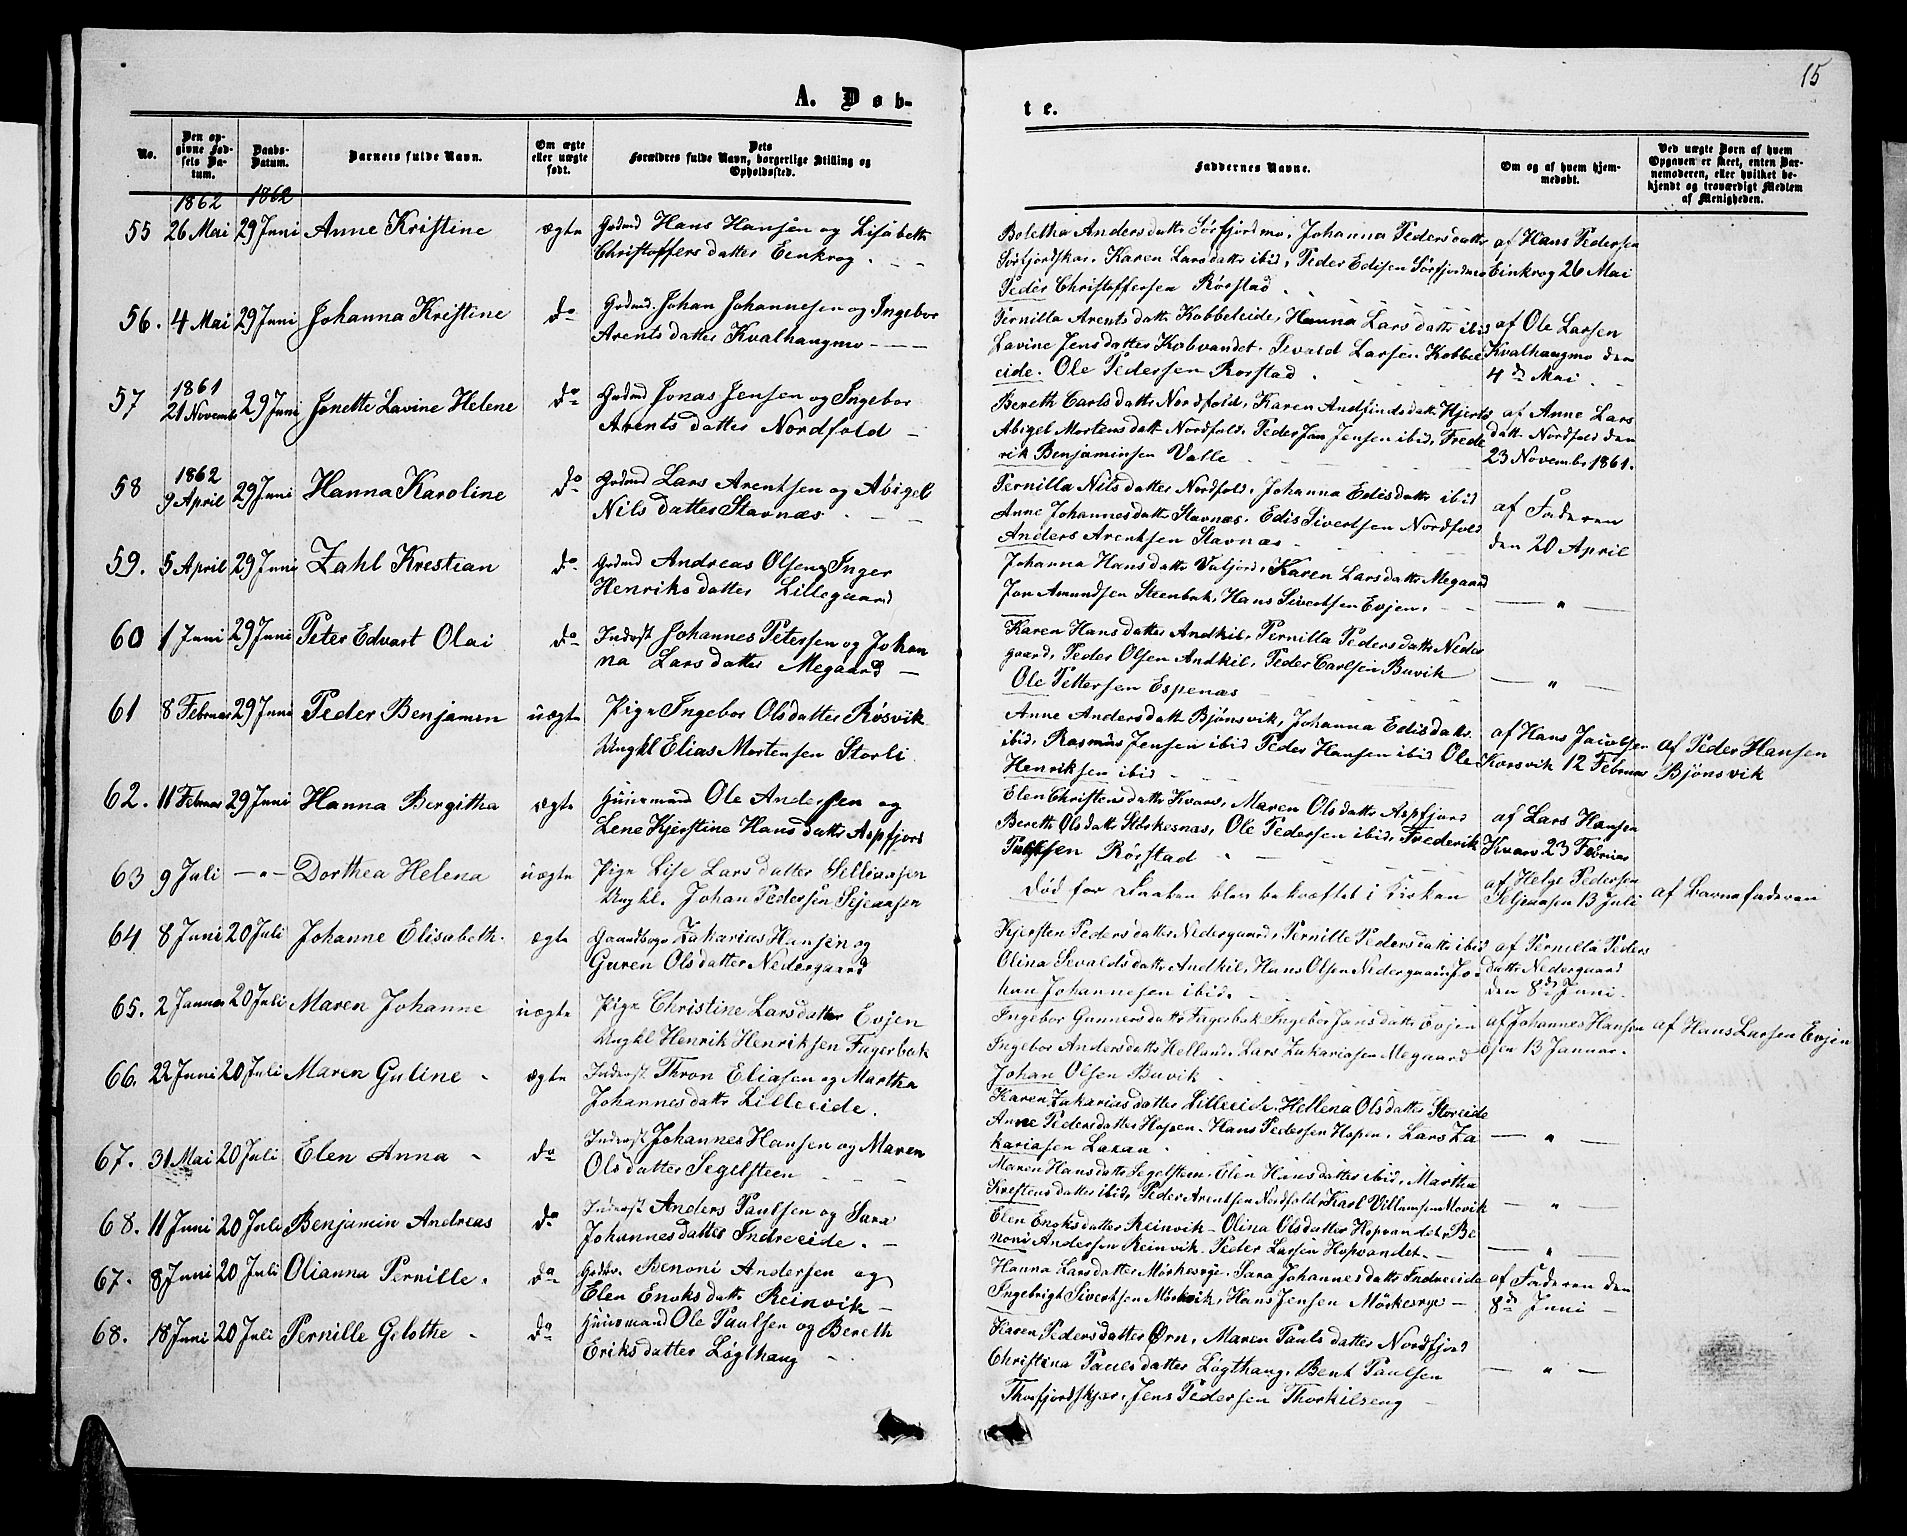 15
A. Døb-
te.
No.
Den opgivne Fødsels Datum.
Daabs-Datum.
Barnets fulde Navn.
Om ægte eller uægte født.
Dets Forældres fulde Navn, borgerlige Stilling og Opholdssted.
Faddernes Navne.
Om og af hvem hjemmedøbt.
Ved uægte Børn af hvem Opgaven er skeet, enten Barnemoderen, eller hvilket bekjendt og troværdigt Medlem af Menigheden.
1862 1862
55 26 Mai 29 Juni Anne Kristine ægte Grdmd Hans Hansen og Lisabeth
Christoffers datter Eenkrog
Boletha Anders datt Sörfjordmo, Johanna Peders datt
Sörfjordskar, Karen Lars datt ibid, Peder Edisen Sörfjordmo
Peder Christoffersen Rörstad
af Hans Pedersen
Einkrog 26 Mai
56. 4 Mai 29 Juni Johanna Kristine do Grdmd. Johan Johannesen og Ingebor
Arents datter Kvalhaugmo
Pernilla Arents datt Kobbeleide, Hanna Lars datt ibid
Lavine Jens datter Kobvandet. Sevald Larsen Kobbel
eide. Ole Pedersen Rørstad
af Ole Larsen
Kvalhaugmo den
4de Mai
1861
57 21 Novemb 29 Juni Jonette Lavine Helene do Grdmd Jonas Jensen og Ingebor
Arents datter Nordfold
Bereth Carls datt Nordfold, Karen Andfinds datt Hjertø
Abigel Mortens datt Nordfold. Peder Jan Jensen ibid, Frede
rik Benjaminsen Valle
af Anne Lars
datt Nordfold den
23 Novembr 1861.
1862
58 9 April 29 Juni Hanna Karoline do Grdmd Lars Arentsen og Abigel
Nils datter Stavnæs
Pernilla Nils datter Nordfold, Johanna Edis datt ibid
Anne Johannes datt Stavnæs, Edis Sivertsen Nordfold
Anders Arentsen Stavnæs
af Faderen
den 20 April
59. 5 April 29 Juni Zahl Krestian do Grdmd Andreas Olsen og Inger
Henriks datter Lillegaard
Johanna Hans datt Vatjord, Karen Lars datt Megaard
Jon Amundsen Steenbak, Hans Sivertsen Evjen,
— " —
60 1 Juni 29 Juni Peter Edvart Olai do Inderst Johannes Petersen og Johan
na Lars datter Megaard
Karen Hans datter Andkil, Pernilla Peders datt Neder
gaard, Peder Olsen Andkil, Peder Carlsen Buvik
Ole Pettersen Espenæs
— " —
61 8 Februar 29 Juni Peder Benjamin uægte Pige Ingebor Ols datter Røsvik
Ungkl Elias Mortensen Storli
Anne Anders datt Bjönsvik, Johanna Edis datt
ibid, Rasmus Jensen ibid Peder Hansen ibid Ole
Henriksen ibid
af Hans Jacobsen
Korsvik 12 Februar
af Peder Hansen
Bjönsvik
62. 11 Februar 29 Juni Hanna Bergitha ægte Huusmand Ole Andersen og
Lene Kjerstine Hans datt Aspfjord
Elen Christens datt Kvarv, Maren Ols datt Aspfjord
Bereth Ols datt Ilskesnæs, Ole Pedersen ibid, Frederik
Paulsen Rörstad
af Lars Hansen
Kvarv 23 Februar
63 9 Juli — " — Dorthea Helena uægte Pige Lise Lars datter Selliaasen
Ungkl. Johan Pedersen Sejeaasen
död før Daaben blev bekræftet i Kirken
af Helge Pedersen
Seljeaasen 13 Juli
af Barnefaderen
64 8 Juni 20 Juli Johanne Elisabeth ægte Gaardbrgr Zakarias Hansen og
Guren Ols datter Nedergaard
Kjersten Peders datt Nedergaard, Pernille Peders datt ibid
Olina Sevalds datt Andkil, Hans Olsen Nedergaard, Jo
han Johannesen ibid.
af Pernilla Peders
datt Nedergaard
den 8de Juni.
65. 2 Januar 20 Juli Maren Johanne uægte Pige Christine Lars datter Evjen
Ungkl Henrik Henriksen Fagerbak
Ingebor Gunners datt Fagerbak Ingebor Jans datt Evjen
Ingebor Anders datt Helland, Lars Zakariasen Megaard
Johan Olsen Buvik
af Johannes Hansen
Evjen 13 Januar.
af Hans Larsen Evjen
66. 22 Juni 20 Juli Maren Guline ægte Inderst Thron Eliasen og Martha
Johannes datt Lilleeide.
Karen Zakarias datter Lilleeide, Hellena Ols datter Storeide
Anne Peders datter Hopen, Hans Pedersen Hopen, Lars Za
kariasen Laxaa
— " —
67. 31 Mai 20 Juli Elen Anna do Inderst Johannes Hansen og Maren
Ols datter Segelsteen
Maren Hans datt Segelsteen, Elen Hans datter ibid, Martha
Krestens datter ibid, Peder Arentsen Nordfold, Karl Villumsen Movik
— " —
68. 11 Juni 20 Juli Benjamin Andreas do Inderst Anders Paulsen og Sara
Johannes datter Indreeide.
Elen Enoks datter Reinvik, Olina Ols datter Hopvandet, Be
noni Andersen Reinvik. Peder Larsen Hopvandet.
— " —
67. 8 Juni 20 Juli Olianna Pernille. do Grdbr. Benoni Andersen og
Elen Enoks datt Reinvik
Hanna Lars datter Mörkesvye. Sara Johannes datt Indreeide
Ingebrigt Sivertsen Mörkvik, Hans Jensen Mörkesvye
af Faderen den
8de Juni
68. 18 Juni 20 Juli Pernille Gelothe do Huusmand Ole Paulsen og Bereth
Eriks datter Løgthaug
Karen Peders datter Ørn, Maren Pauls datter Nordfjord
Christina Pauls datter Løgthaug, Bent Paulsen
Thorfjordskjær, Jens Pedersen Thorkilseng
— " —